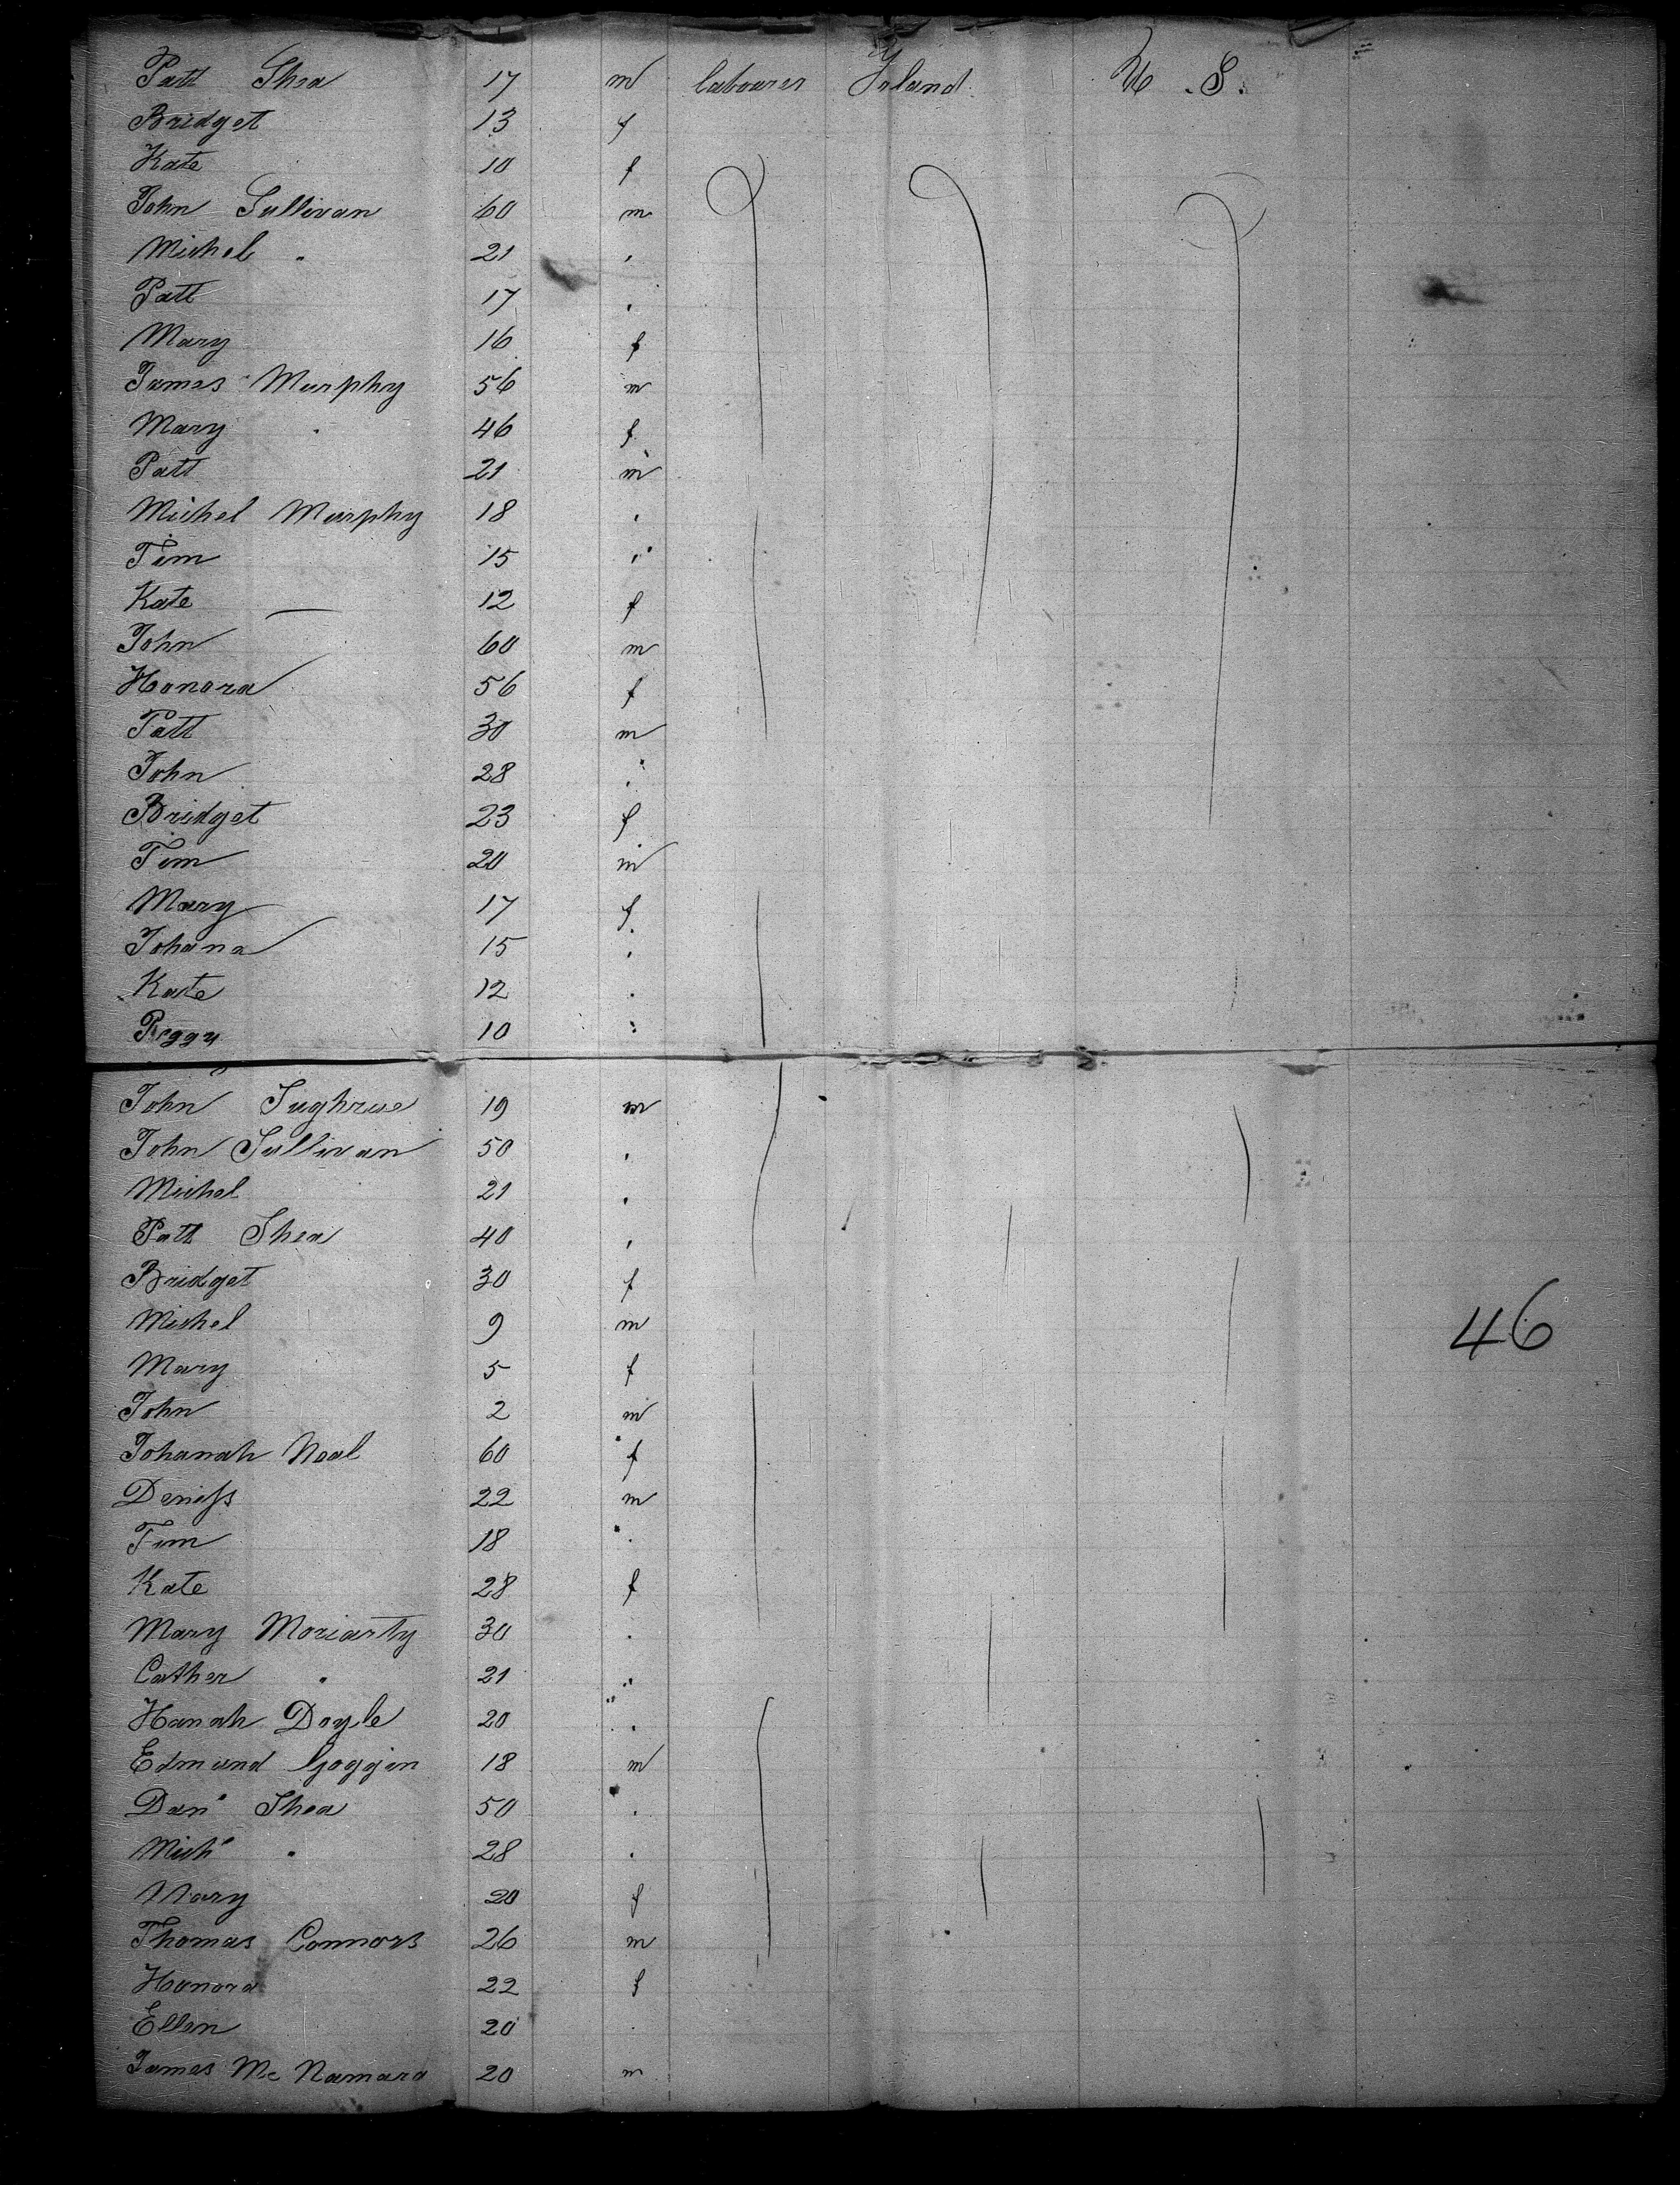 Patt Shea 17 m labourer Ireland U.S.
Bridget 13 f
Kate 10 f
John Sullivan 60 m
Michel " 21 "
Patt 17 "
Mary 16 f
James Murphy 56 m
Mary " 46 f
Patt 21 m
Michel Murphy 18 "
Tim 15 "
Kate 12 f
John 60 m
Honora 56 f
Patt 30 m
John 28 "
Bridget 23 f
Tim 20 m
Mary 17 f
Johana 15 "
Kate 12 "
Peggy 10 "
John Sughrue 19 m
John Sullivan 50 "
Michel 21 "
Patt Shea 40 "
Bridget 30 f
Michel 9 m
Mary 5 f
46
John 2 m
Johanah Neal 60 f
Deniss 22 m
Tim 18 "
Kate 28 f
Mary Moriarty 30 "
Cather " 21 "
Hanah Doyle 20 "
Edmund Goggin 18 m
Danl Shea 50 "
Michl " 28 "
Mary 20 f
Thomas Connors 26 m
Honora 22 f
Ellen 20 "
James Mc Namara 20 m